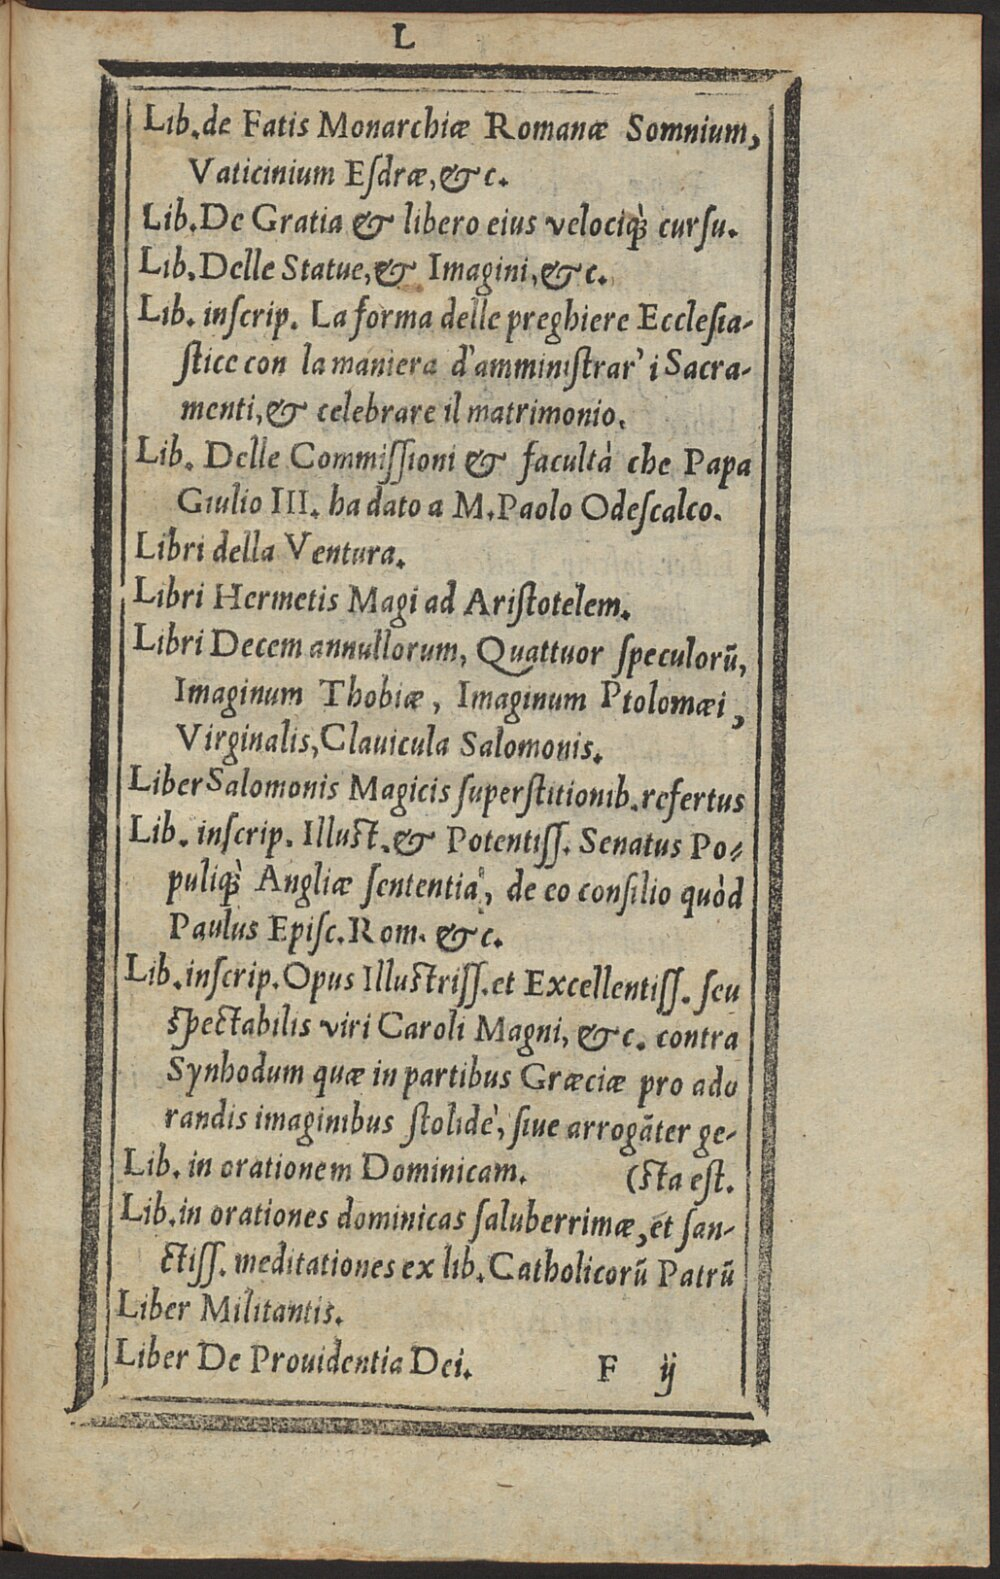 L
Lib. de Fatis Monarchiæ Romanæ Somnium,
Vaticinium Eſdræ, & c.
Lib. De Gratia & libero eius velociq́; curſu.
Lib. Delle Statue, & Imagini, & c.
Lib. inſcrip. La forma delle preghiere Eccleſia-
ſtice con la maniera d'amminiſtrar' i Sacra-
menti, & celebrare il matrimonio.
Lib. Delle Commiſſioni & facultà che Papa
Giulio III. ha dato a M. Paolo Odeſcalco.
Libri della Ventura.
Libri Hermetis Magi ad Ariſtotelem.
Libri Decem annullorum, Quattuor ſpeculorū,
Imaginum Thobiæ, Imaginum Ptolomæi,
Virginalis, Clauicula Salomonis.
Liber Salomonis Magicis ſuperſtitionib. refertus
Lib. inſcrip. Illuſt. & Potentiſſ. Senatus Po-
puliq́; Angliæ ſententia, de eo conſilio quòd
Paulus Epiſc. Rom. & c.
Lib. inſcrip. Opus Illuſtriſſ. et Excellentiſſ. ſeu
ſpectabilis viri Caroli Magni, & c. contra
Synhodum quæ in partibus Græciæ pro ado
randis imaginibus ſtolidè, ſiue arrogāter ge-
Lib. in orationem Dominicam. (ſta eſt.
Lib. in orationes dominicas ſaluberrimæ, et ſan-
ctiſſ. meditationes ex lib. Catholicorū Patrū
Liber Militantis.
Liber De Prouidentia Dei. F ij